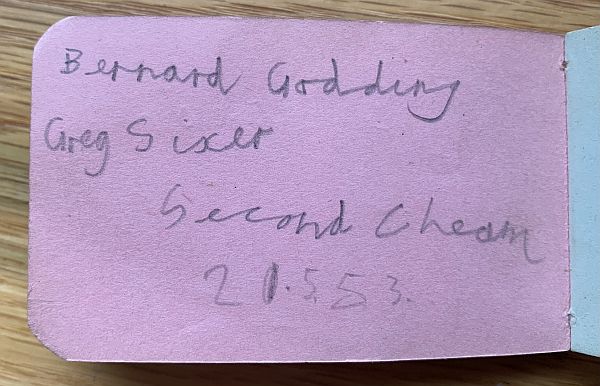 Bernard Godding
Greg Sixer
Second Cheam
21.5.53.